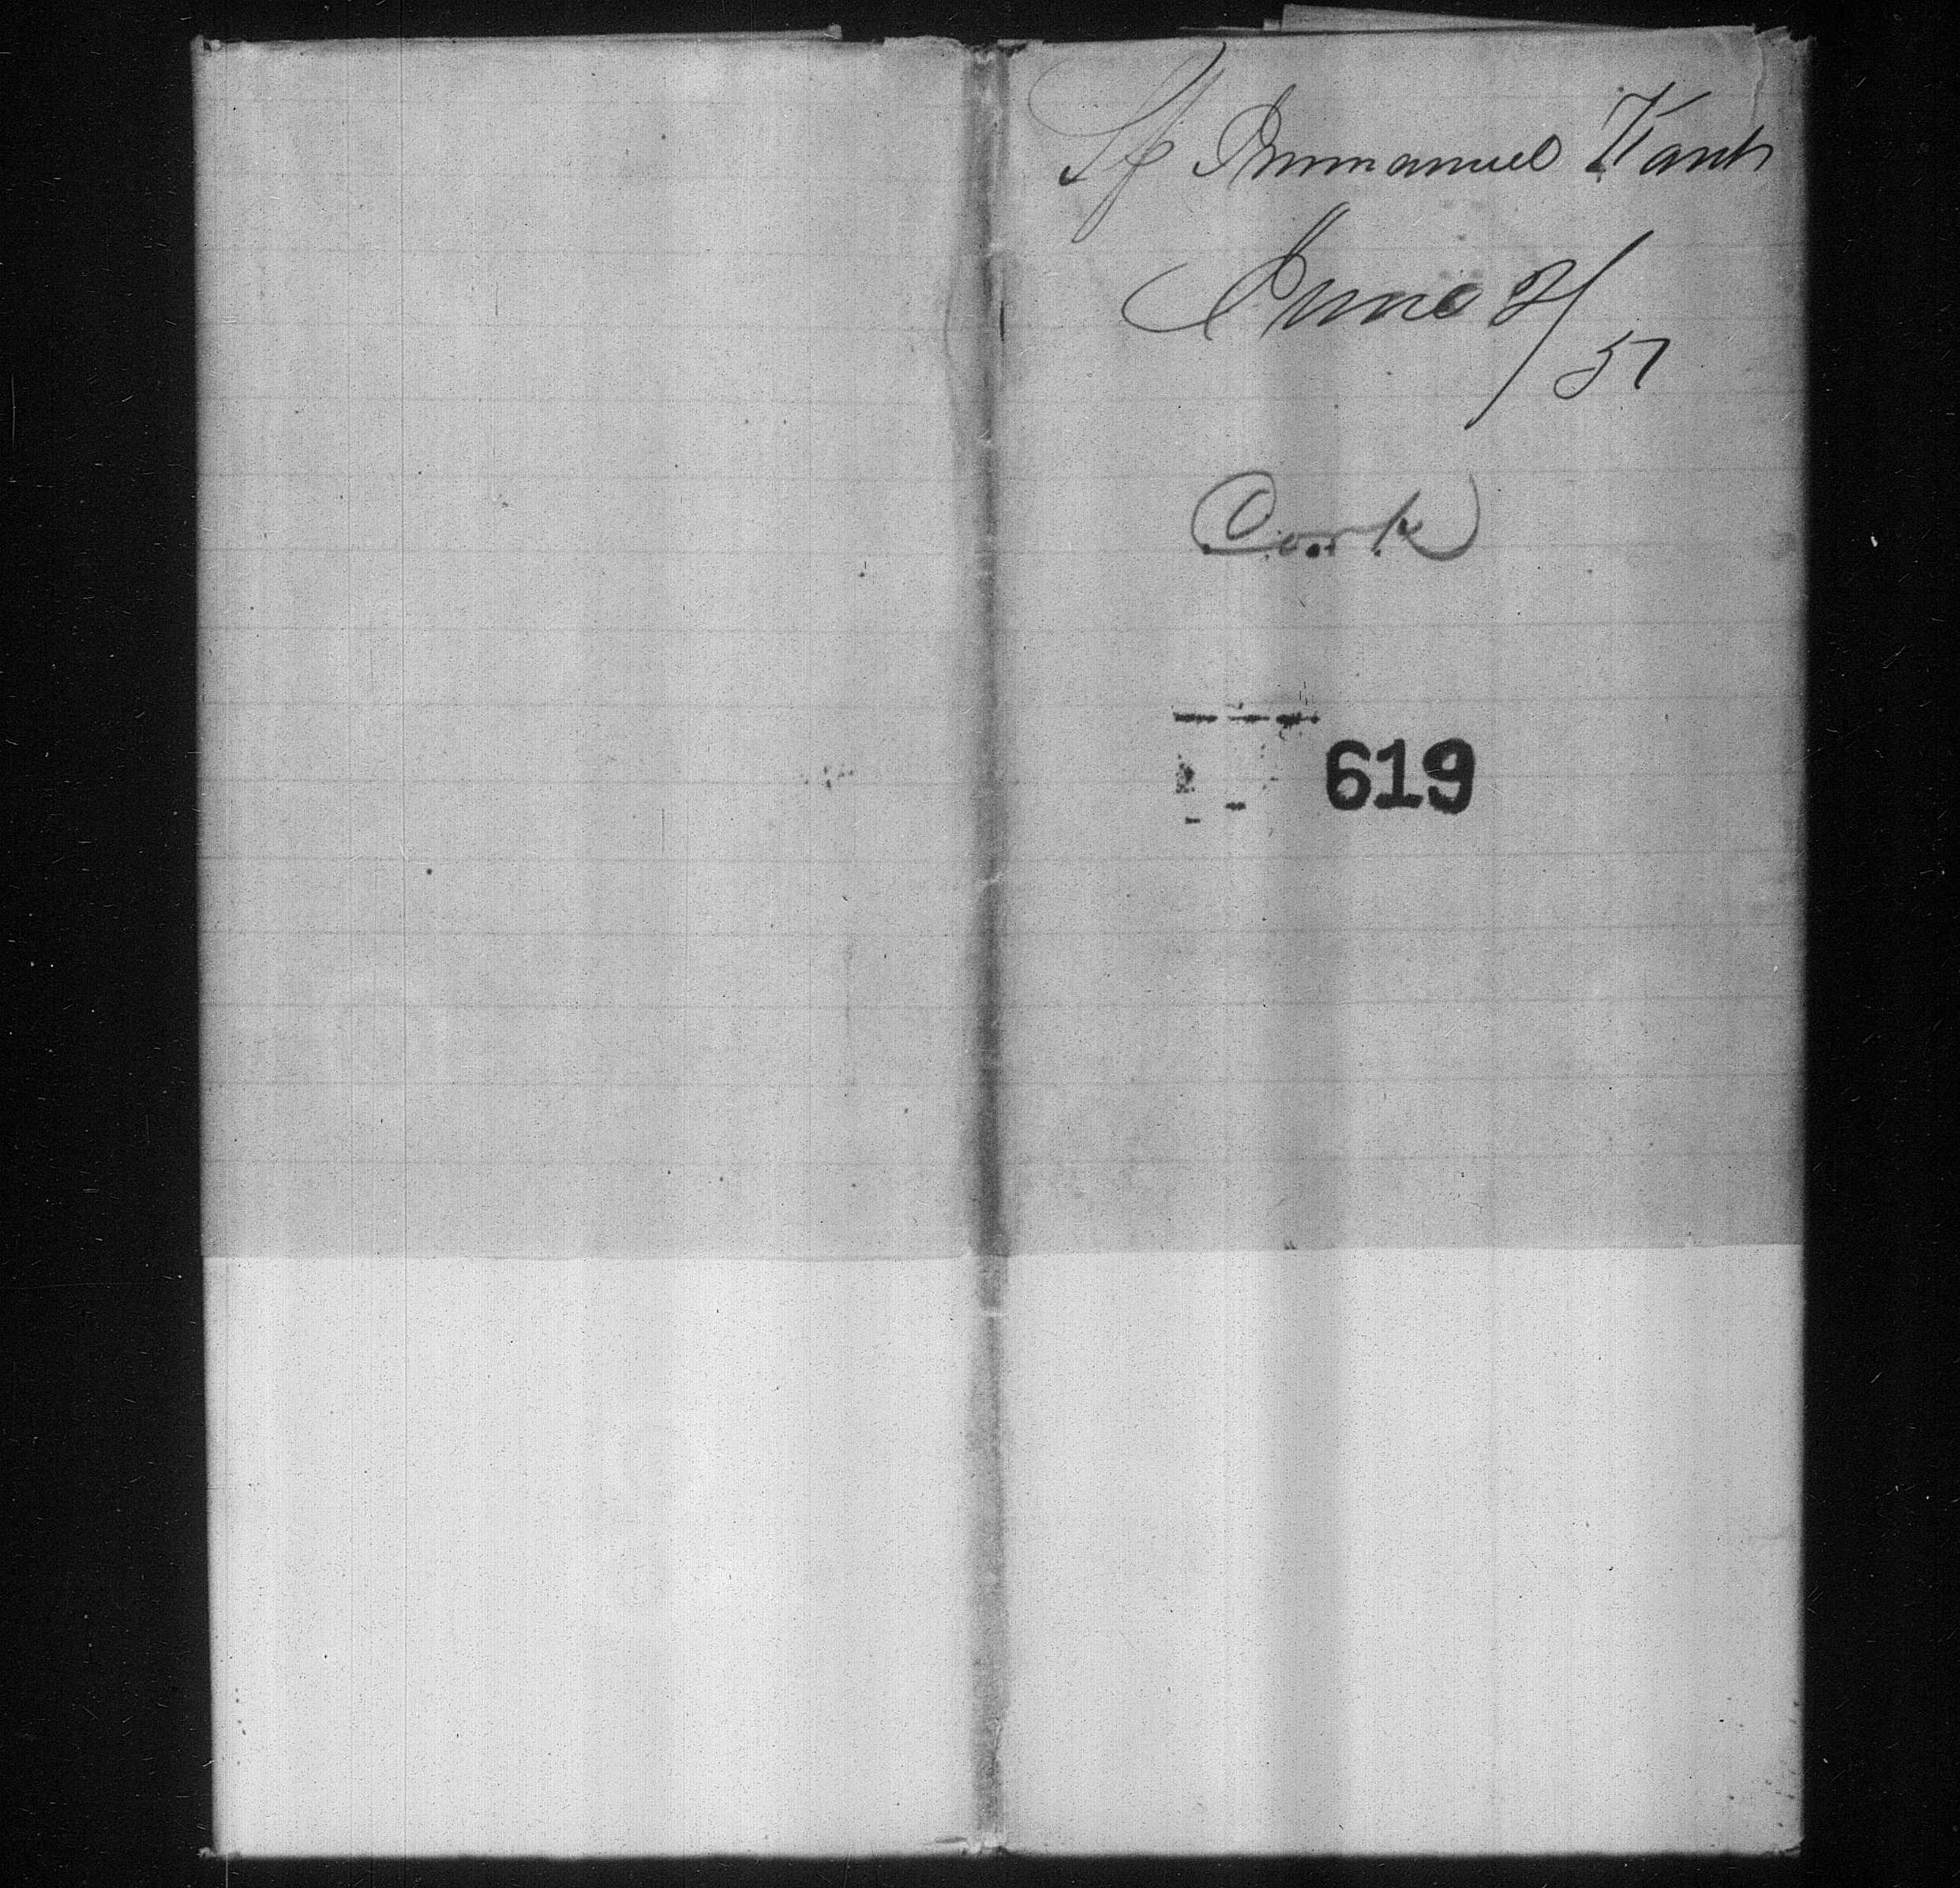 Sp Immanuel Kant
June 2/
57
Cork
619